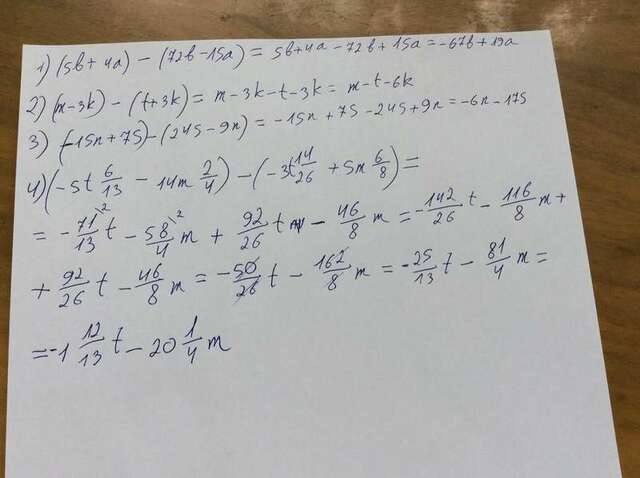 1) (5b + 4a) - (72b - 15a) = 5b + 4a - 72b + 15a = -67b + 19a
2) (m - 3k) - (t + 3k) = m - 3k - t - 3k = m - t - 6k
3) (-15n + 7s) - (24s - 9n) = -15n + 7s - 24s + 9n = -6n - 17s
4) (-5t 6/13 - 14m 2/4) - (-3t 14/26 + 5m 6/8) =
= -71/13 t - 58/4 m + 92/26 t - 46/8 m = -142/26 t - 116/8 m +
+ 92/26 t - 46/8 m = -50/26 t - 162/8 m = -25/13 t - 81/4 m =
= -1 12/13 t - 20 1/4 m